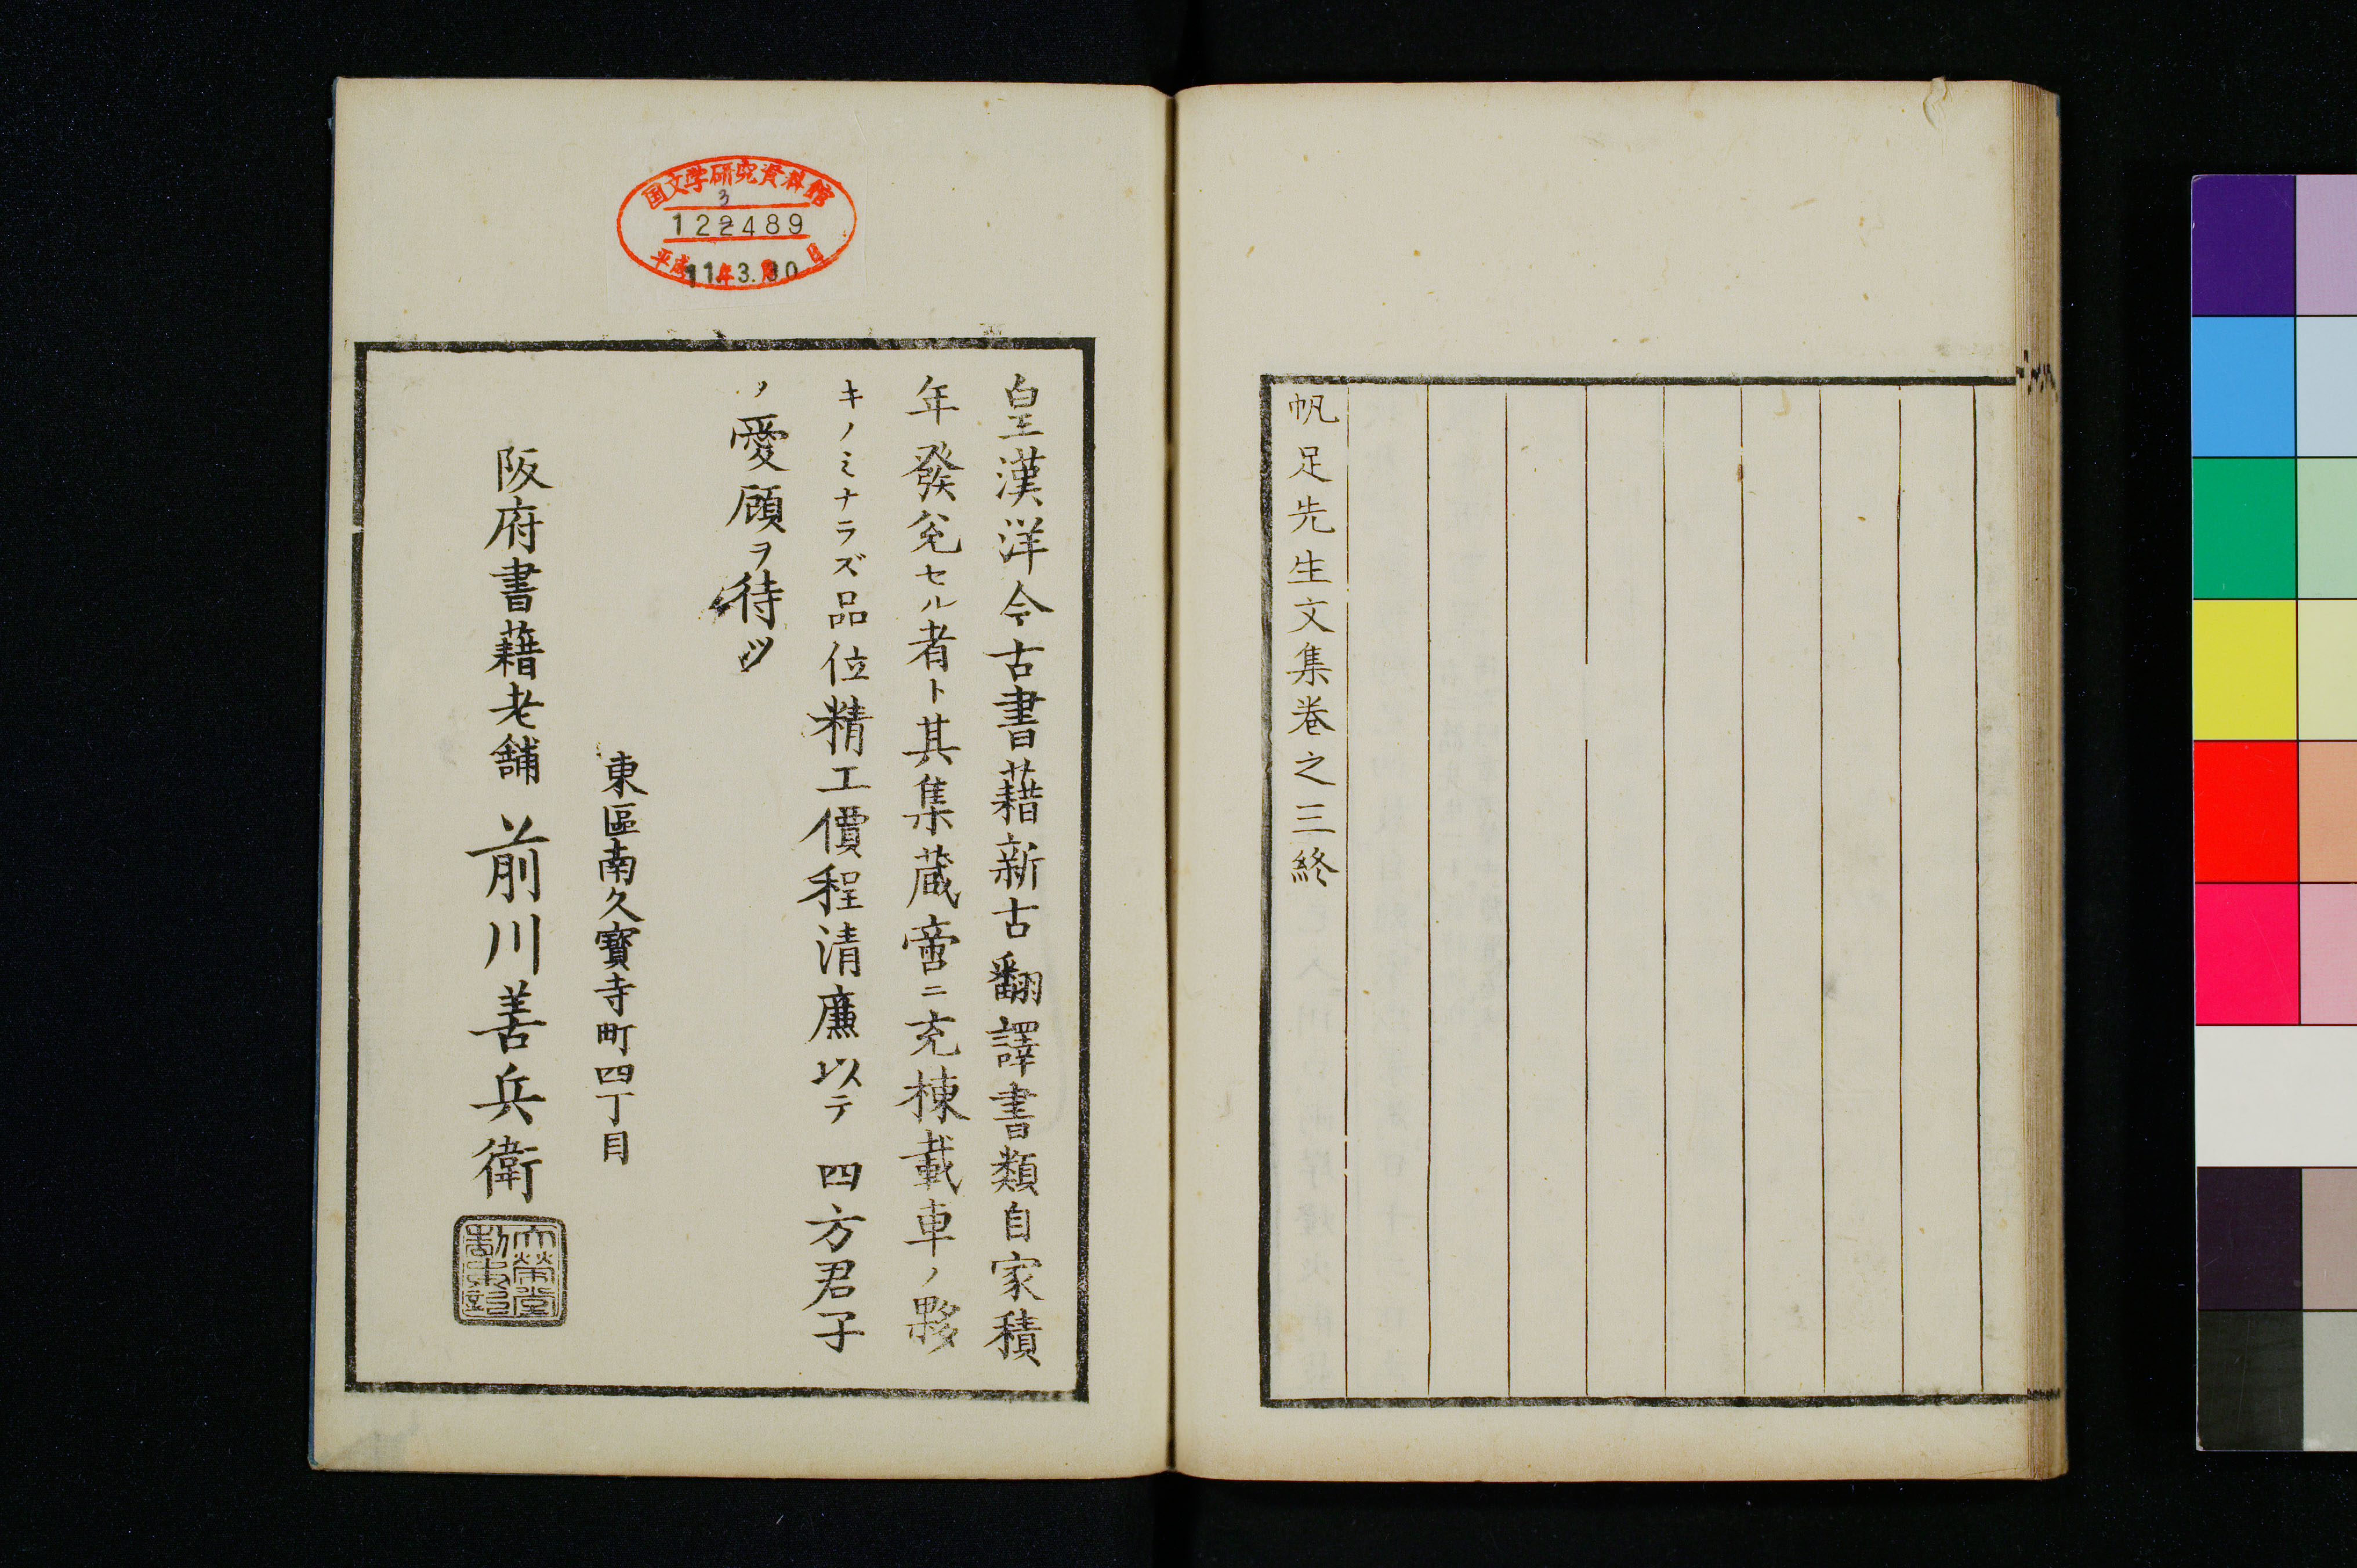 帆足先生文集卷之三終
国文学研究資料館
3
122489
平成11年3.月30日
皇漢洋今古書藉新古翻譯書類自家積
年發兌セル者ト其集藏啻ニ充棟載車ノ夥
キノミナラズ品位精工價程清廉以テ 四方君子
ノ愛顧ヲ待ツ
東區南久寶寺町四丁目
阪府書藉老舖 前川善兵衛